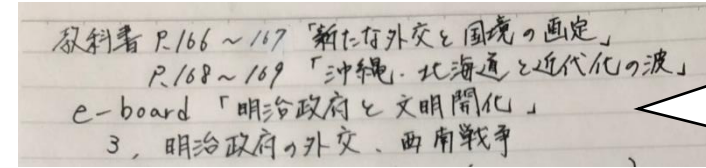 教科書 P.166～167「新たな外交と国境の画定」
P.168～169「沖縄・北海道と近代化の波」
e-board「明治政府と文明開化」
3、明治政府の外交、西南戦争